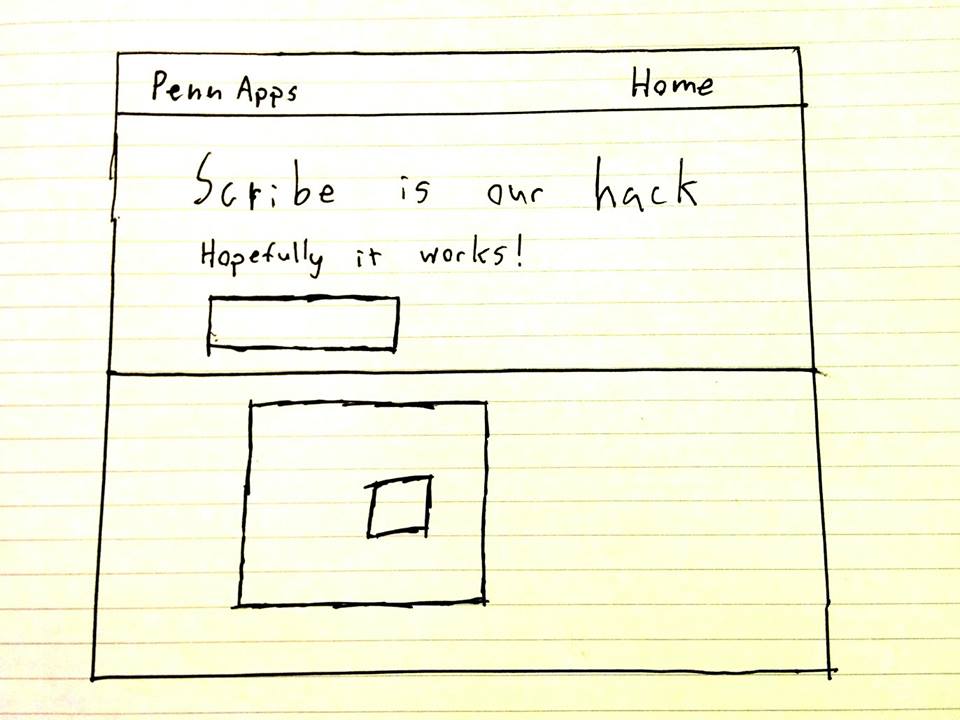 Penn Apps Home
Scribe is our hack
Hopefully it works!